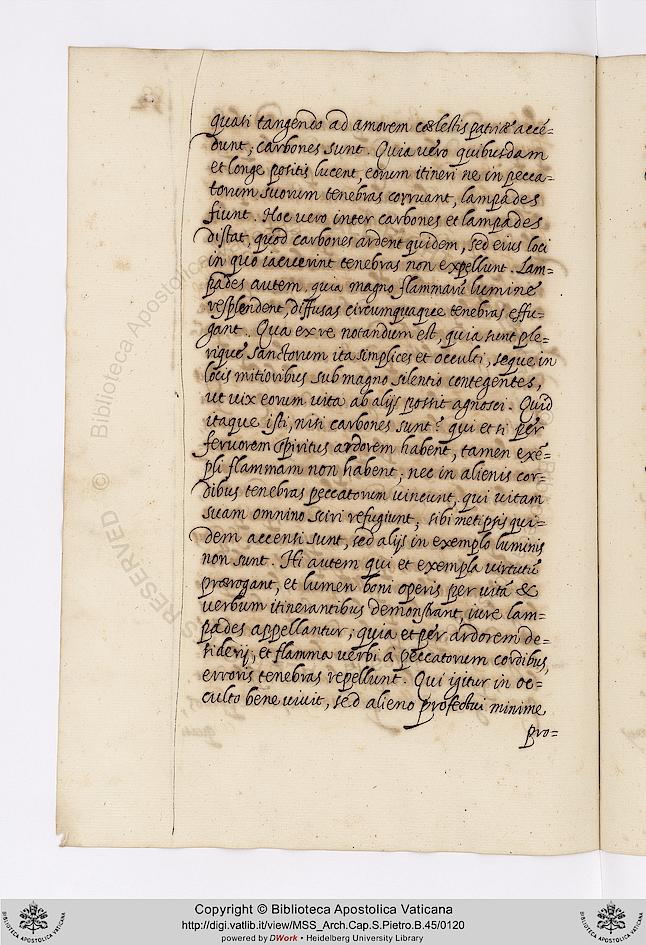 quasi tangendo ad amorem cœlestis patriæ accē=
dunt; carbones sunt. Quia uero quibusdam
et longe positis lucent, eorum itineri ne in pecca=
torum suorum tenebras corruant, lampades
fiunt. Hoc uero inter carbones et lampades
distat, quod carbones ardent quidem, sed eius loci
in quo iacuerint tenebras non expellunt. Lam=
pades autem, quia magno flammarū lumine
resplendent, diffusas circumquaque tenebras effu=
gant. Qua ex re notandum est, quia sunt ple=
rique sanctorum ita simplices et occulti, seque in
locis mitioribus sub magno silentio contegentes,
ut uix eorum uita ab alijs possit agnosci. Quid
itaque isti, nisi carbones sunt? qui et si per
feruorem spiritus ardorem habent, tamen exē=
pli flammam non habent; nec in alienis cor=
dibus tenebras peccatorum uincunt, qui uitam
suam omnino sciri refugiunt; sibimetipsis qui=
dem accensi sunt, sed alijs in exemplo luminis
non sunt. Hi autem qui et exempla uirtutū
prærogant, et lumen boni operis per uitā &
uerbum itinerantibus demonstrant, iure lam=
pades appellantur; quia et per ardorem de=
siderij, et flamma uerbi à peccatorum cordibus,
erroris tenebras repellunt. Qui igitur in oc=
culto bene uiuit, sed alieno profectui minime
pro=
© Biblioteca Apostolica
RESERVED
Copyright © Biblioteca Apostolica Vaticana
http://digi.vatlib.it/view/MSS_Arch.Cap.S.Pietro.B.45/0120
powered by DWork • Heidelberg University Library